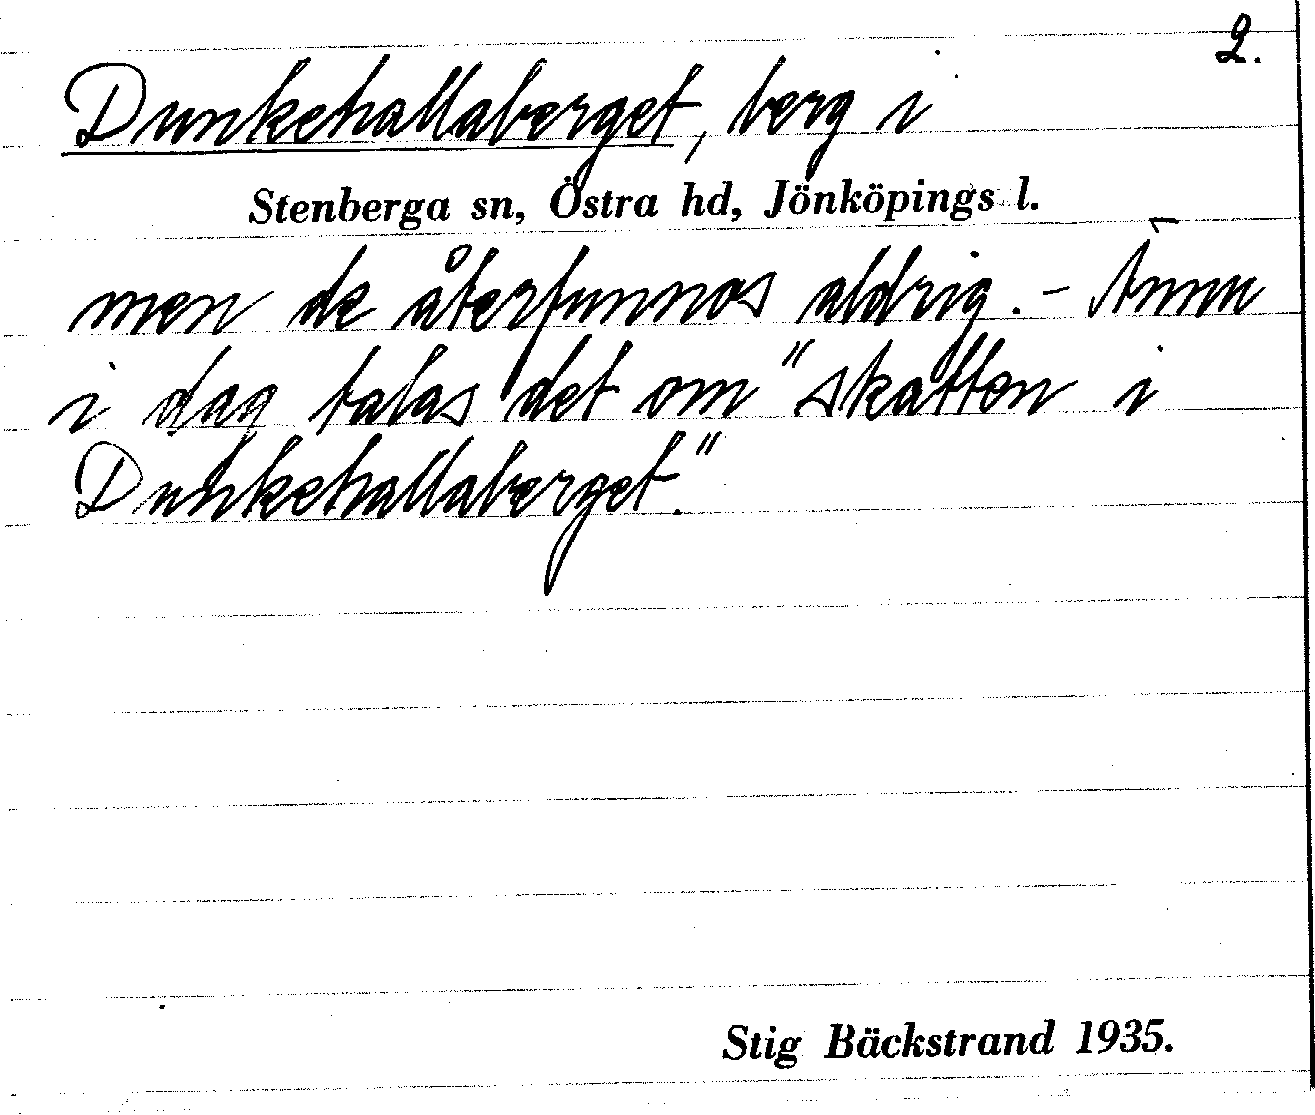 2.
Dunkehallaberget, berg i
Stenberga sn, Östra hd, Jönköpings l.
men de återfunnos aldrig. - Ännu
i dag talas det om "skatten i
Dunkehallaberget."
Stig Bäckstrand 1935.